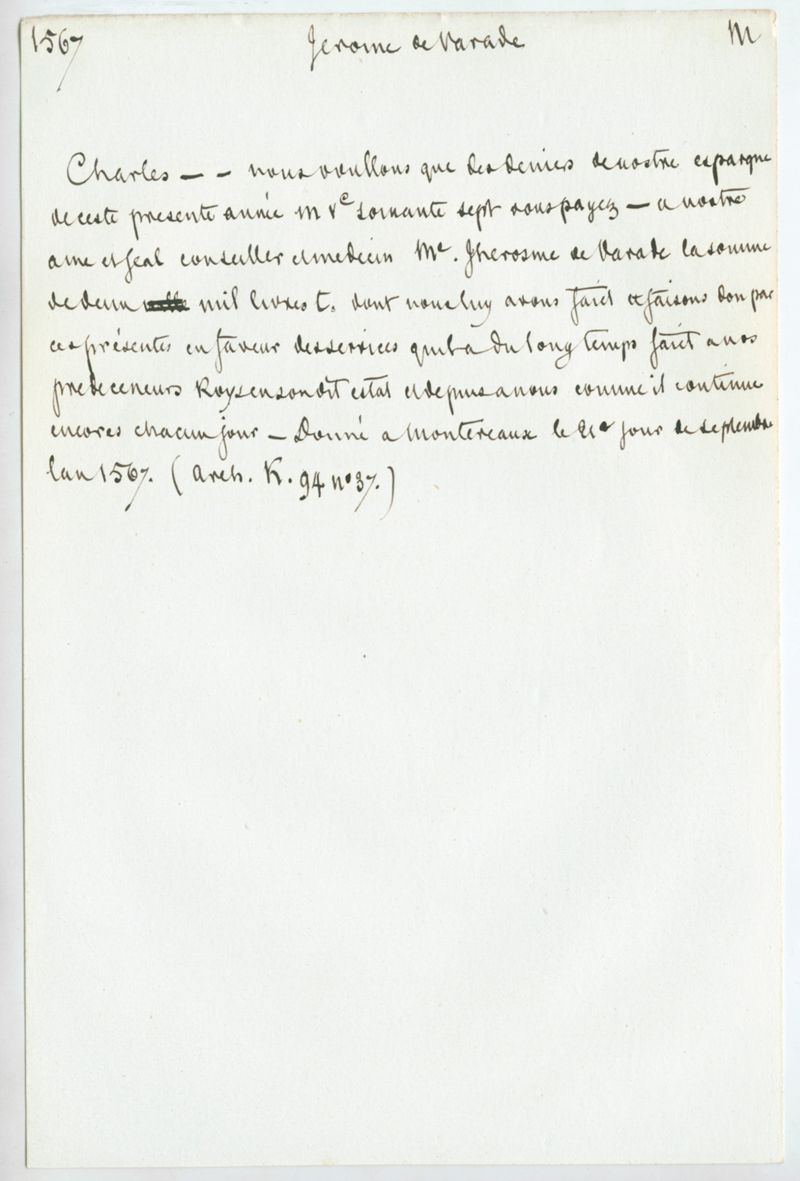 1567 Jerome de Varade M
Charles — - nous voullons que des deniers de nostre espargne
de ceste presente année M Vc soixante sept vous payez — a nostre
ame et feal conseiller et medecin Me. Jherosme de Varade la somme
de deux mil livres t. dont nous luy avons faict et faisons don par
ces présentes en faveur des services quil a du long temps faict a nos
predecesseurs Roys en son dit estat et depuis a nous comme il continue
encores chacun jour — Donné a Montereaux le jour de septembre
lan 1567. (Arch. K. 94 no 37.)